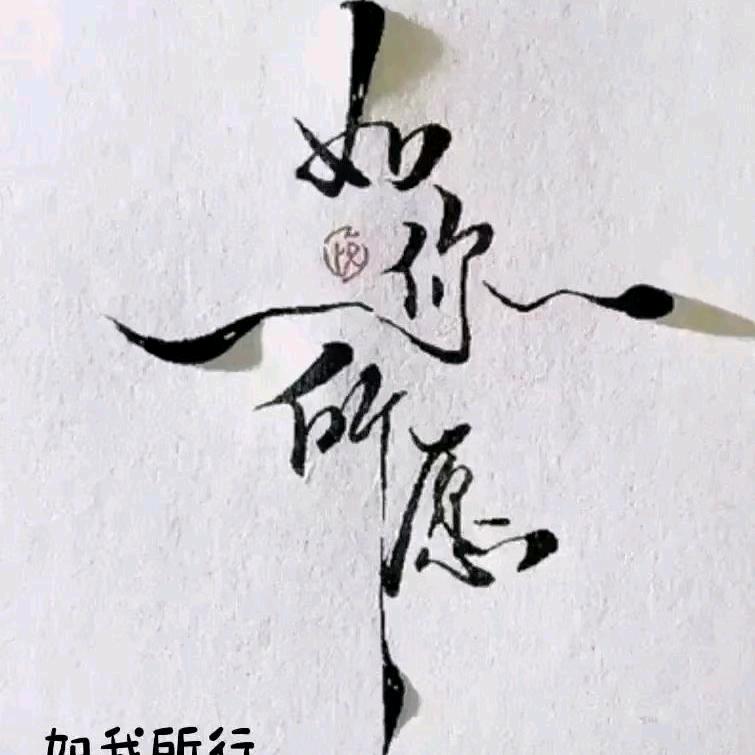 如你所愿
如我所行